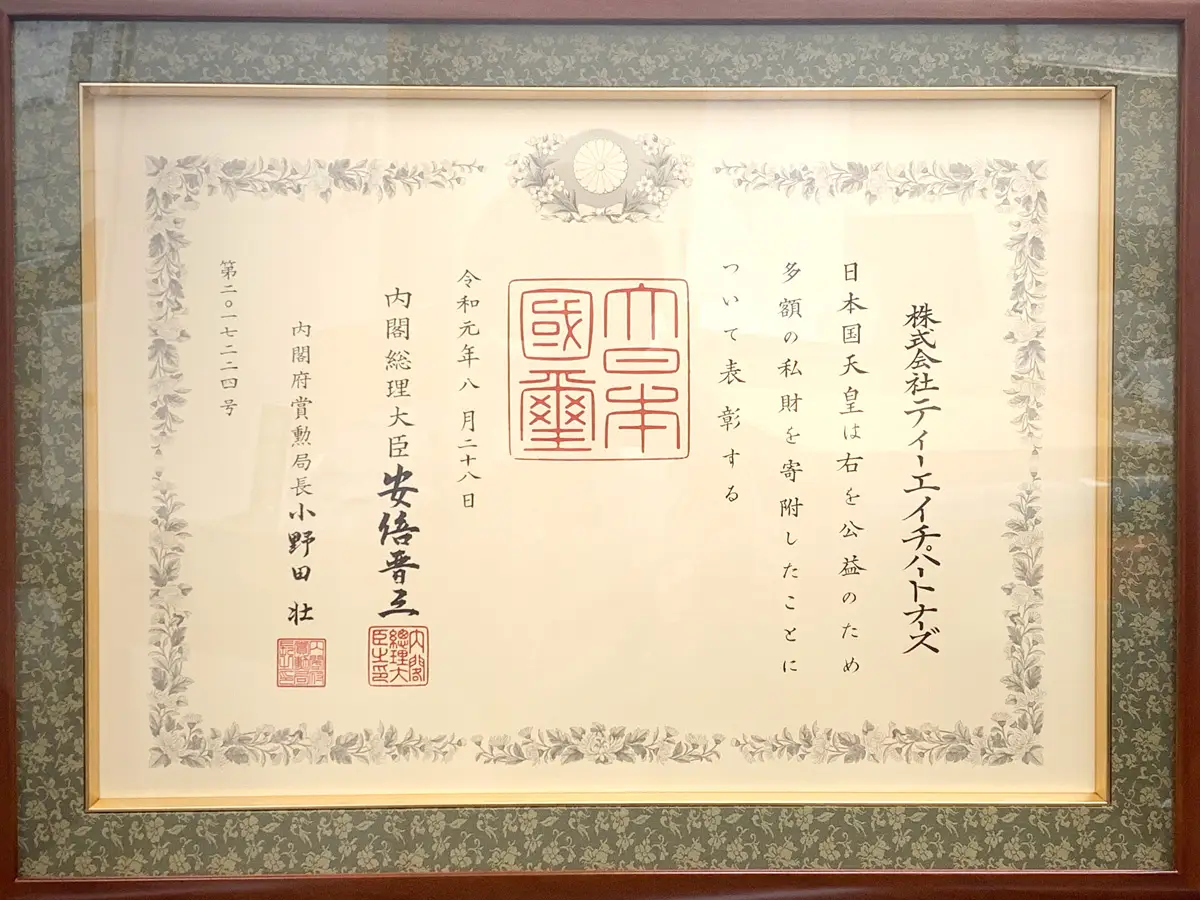 株式会社ティーエイチパートナーズ
日本国天皇は右を公益のため
多額の私財を寄附したことに
ついて表彰する
大日本國璽
令和元年八月二十八日
内閣総理大臣安倍晋三
内閣總理大臣之印
内閣府賞勲局長小野田壮
内閣府賞勲局長之印
第二〇一七二二四号